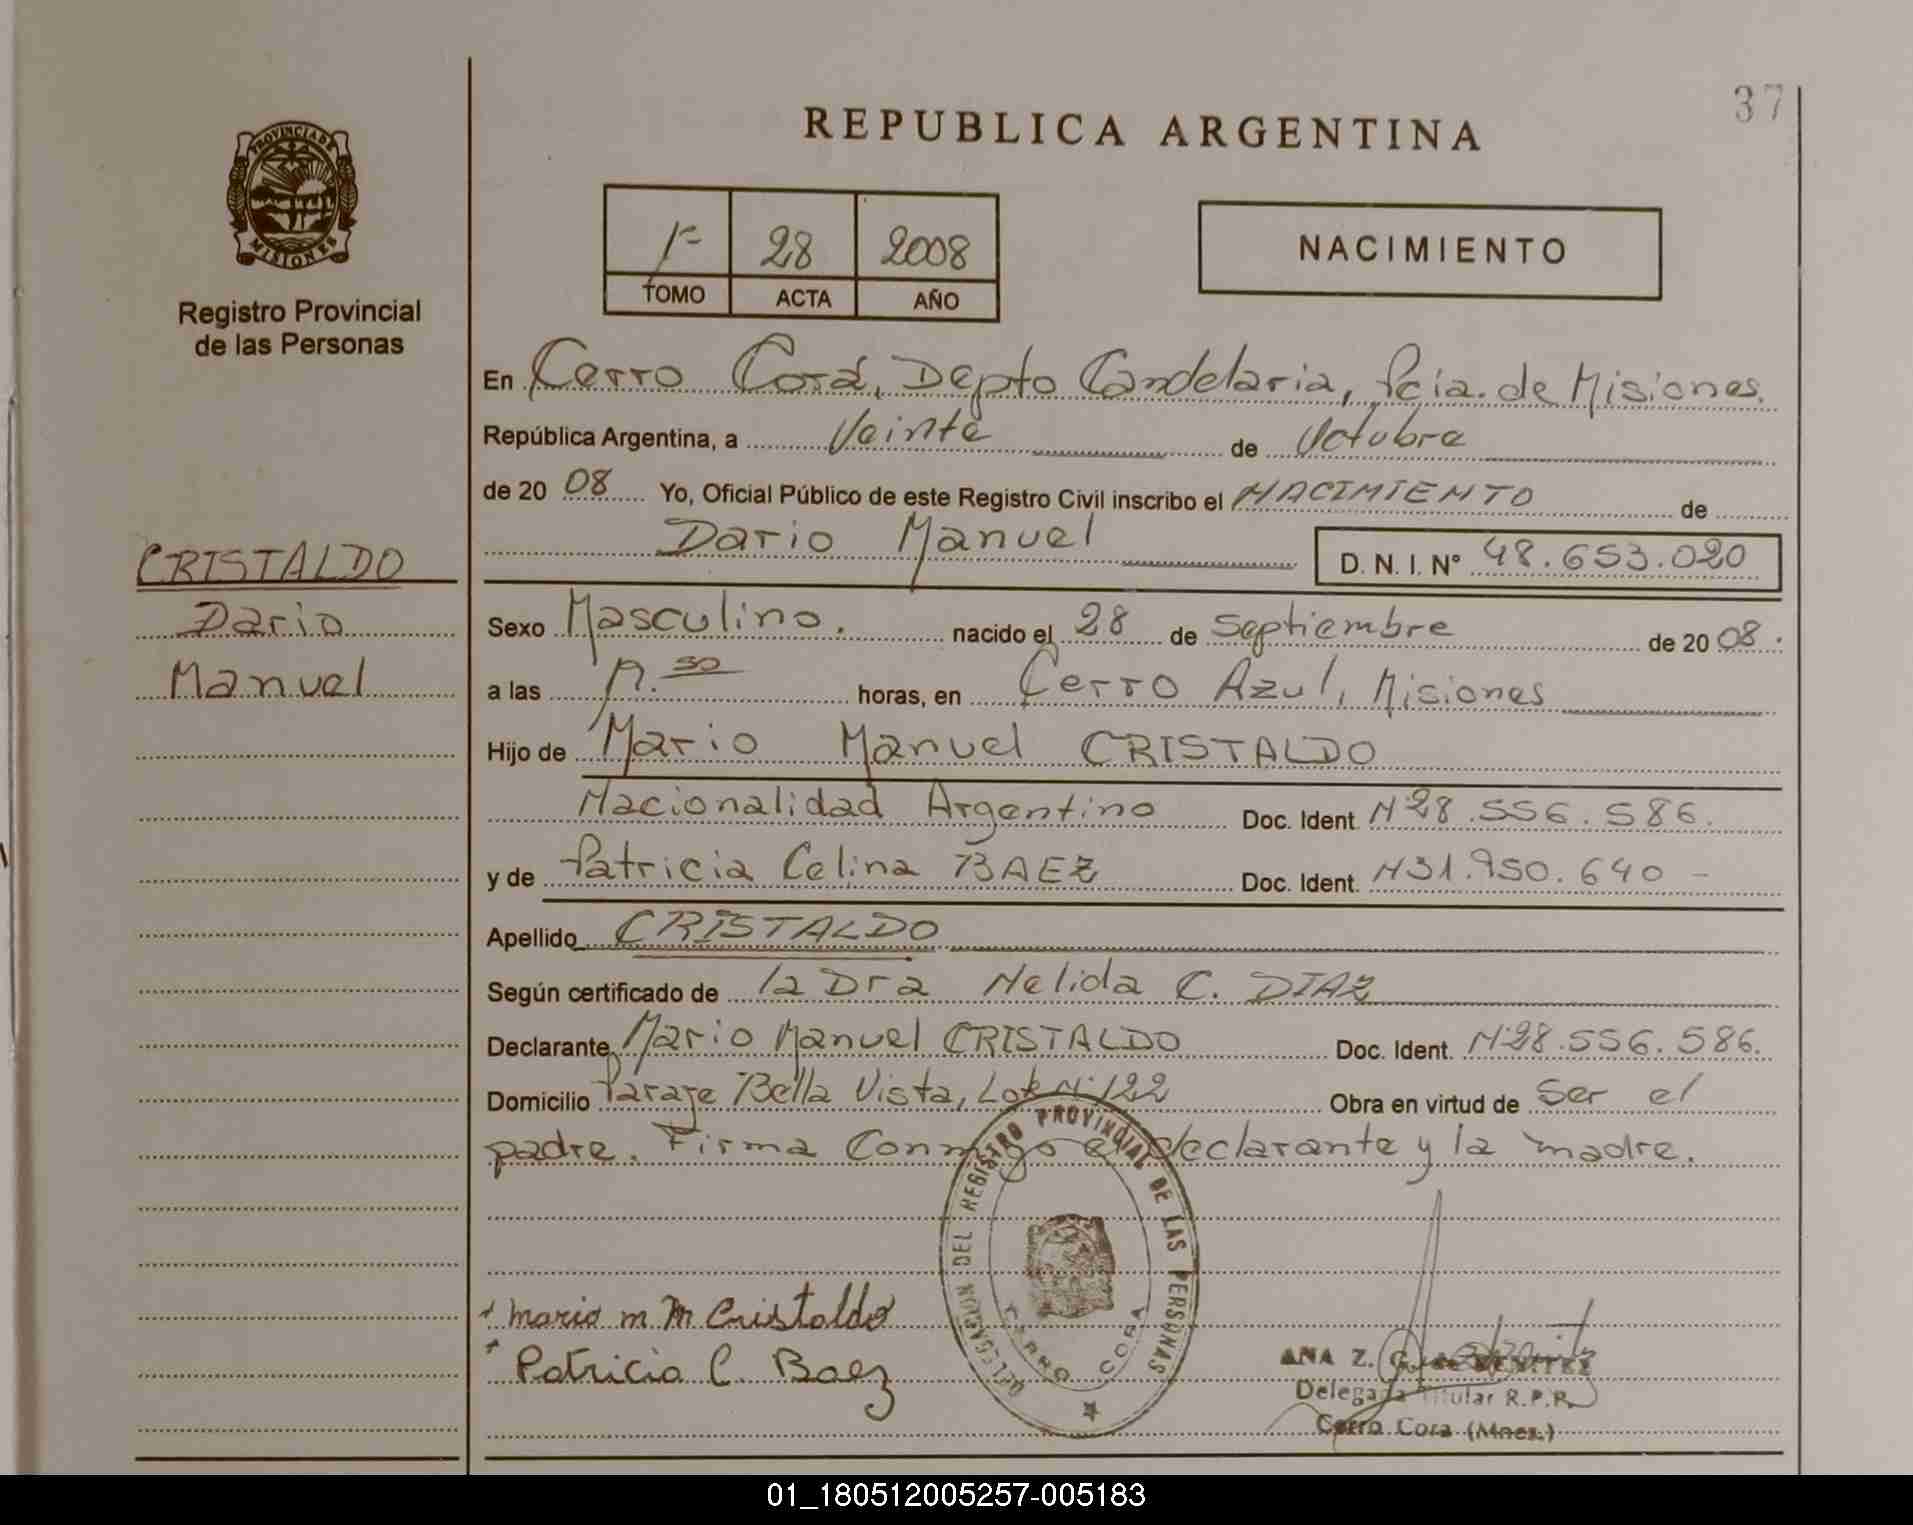 37
REPUBLICA ARGENTINA
PROVINCIA DE
MISIONES
Registro Provincial
de las Personas
1º 28 2008
TOMO ACTA AÑO
NACIMIENTO
En Cerro Corá, Depto Candelaria, Pcia. de Misiones.
República Argentina, a Veinte de Octubre
de 20 08 Yo, Oficial Público de este Registro Civil inscribo el NACIMIENTO de
Dario Manuel D. N. I. Nº 48.653.020
CRISTALDO
Dario
Manuel
Sexo Masculino. nacido el 28 de Septiembre de 20 08.
a las horas, en Cerro Azul, Misiones
Hijo de Mario Manuel CRISTALDO
Nacionalidad Argentino Doc. Ident. Nº 28.556.586.
y de Patricia Celina BAEZ Doc. Ident. Nº 31.950.640 -
Apellido CRISTALDO
Según certificado de la Dra Nelida C. DIAZ
Declarante Mario Manuel CRISTALDO Doc. Ident. Nº 28.556.586.
Domicilio Paraje Bella Vista, Lote Nº 122 Obra en virtud de ser el
padre. Firma Conmigo el declarante y la madre.
DELEGACION DEL REGISTRO PROVINCIAL DE LAS PERSONAS
CERRO CORA
Mario M Cristaldo
Patricia C. Baez
ANA Z. G. de BENITEZ
Delegada Titular R.P.P.
Cerro Cora (Mnes.)
01_180512005257-005183